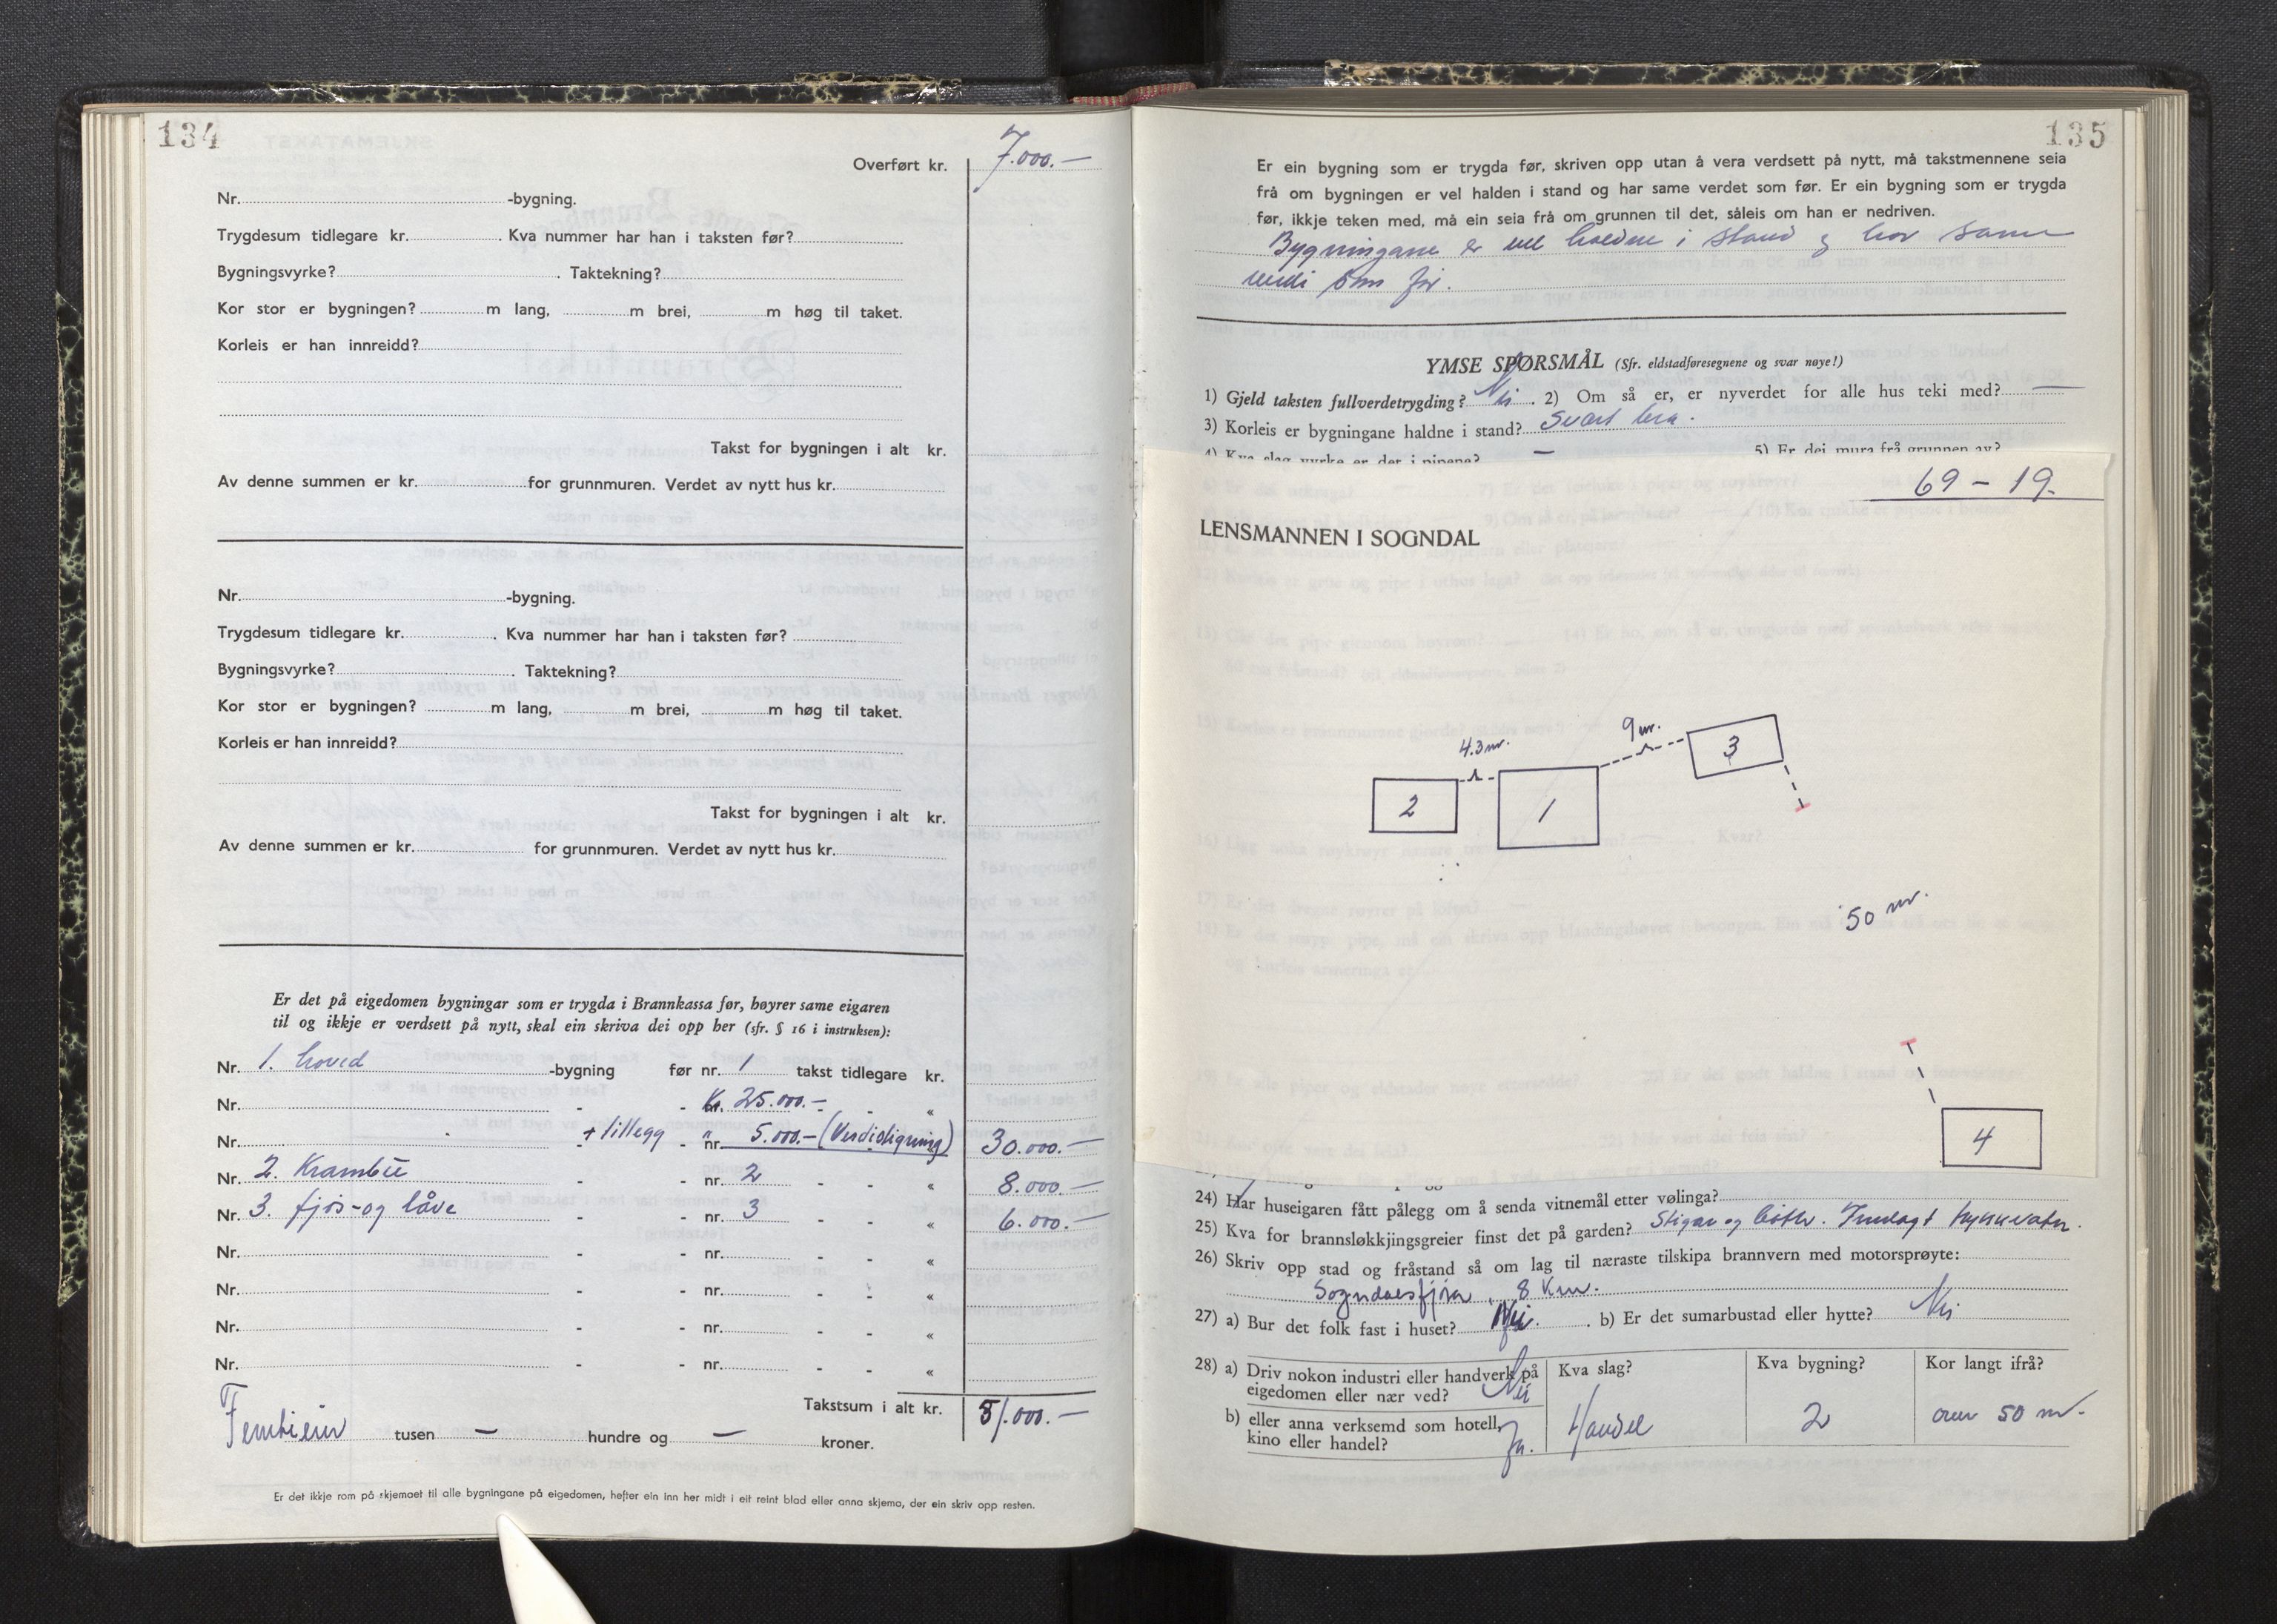 134
Overført kr. 7.000.—
Nr. -bygning.
Trygdesum tidlegare kr. . Kva nummer har han i taksten før?
Bygningsvyrke? . Taktekning?
Kor stor er bygningen? m lang, m brei, m høg til taket.
Korleis er han innreidd?
Takst for bygningen i alt kr.
Av denne summen er kr. for grunnmuren. Verdet av nytt hus kr.
Nr. -bygning.
Trygdesum tidlegare kr. . Kva nummer har han i taksten før?
Bygningsvyrke? . Taktekning?
Kor stor er bygningen? m lang, m brei, m høg til taket.
Korleis er han innreidd?
Takst for bygningen i alt kr.
Av denne summen er kr. for grunnmuren. Verdet av nytt hus kr.
Er det på eigedomen bygningar som er trygda i Brannkassa før, høyrer same eigaren
til og ikkje er verdsett på nytt, skal ein skriva dei opp her (sfr. § 16 i instruksen):
Nr. 1. hoved -bygning før nr. 1 takst tidlegare kr.
Nr. - - Kr. 25.000.— - - «
Nr. - + tillegg - nr. " 5.000.— (Verdistigning) 30.000.—
Nr. 2. Krambu - - nr. 2 - - « 8.000.—
Nr. 3. fjøs-og låve - - nr. 3 - - « 6.000.—
Nr. - - nr. - - «
Nr. - - nr. - - «
Nr. - - nr. - - «
Nr. - - nr. - - «
Takstsum i alt kr. 51.000.—
Femtiein tusen — hundre og — kroner.
Er det ikkje rom på skjemaet til alle bygningane på eigedomen, hefter ein inn her midt i eit reint blad eller anna skjema, der ein skriv opp resten.
135
Er ein bygning som er trygda før, skriven opp utan å vera verdsett på nytt, må takstmennene seia
frå om bygningen er vel halden i stand og har same verdet som før. Er ein bygning som er trygda
før, ikkje teken med, må ein seia frå om grunnen til det, såleis om han er nedriven.
Bygningane er vel haldne i stand og har same
verdi som før.
YMSE SPØRSMÅL (Sfr. eldstadføresegnene og svar nøye!)
1) Gjeld taksten fullverdetrygding? Nei . 2) Om så er, er nyverdet for alle hus teki med? —
3) Korleis er bygningane haldne i stand? Svært bra.
4) Kva slag vyrke er det i pipene? — 5) Er dei mura frå grunnen av?
69 - 19.
LENSMANNEN I SOGNDAL
4.3 m.
9 m.
2
1
3
50 m.
4
24) Har huseigaren fått pålegg om å senda vitnemål etter vølinga?
25) Kva for brannsløkkjingsgreier finst det på garden? Stigar og bøtter. Innlagt trykkvatn.
26) Skriv opp stad og fråstand så om lag til næraste tilskipa brannvern med motorsprøyte:
Sogndalsfjøra, 8 Km.
27) a) Bur det folk fast i huset? . b) Er det sumarbustad eller hytte? Nei
28) a) Driv nokon industri eller handverk på eigedomen eller nær ved? Nei
Kva slag? Kva bygning? Kor langt ifrå?
b) eller anna verksemd som hotell, kino eller handel? Ja. Handel 2 over 50 m.